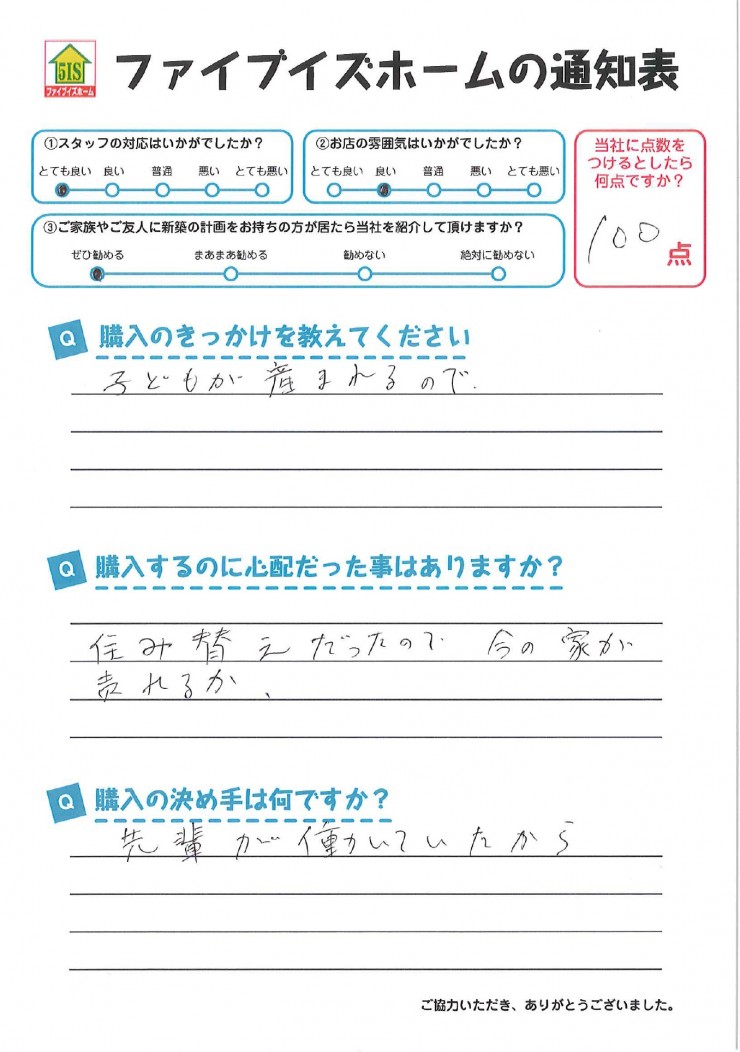 5IS
ファイブイズホーム
ファイブイズホームの通知表
①スタッフの対応はいかがでしたか？
とても良い 良い 普通 悪い とても悪い
②お店の雰囲気はいかがでしたか？
とても良い 良い 普通 悪い とても悪い
③ご家族やご友人に新築の計画をお持ちの方が居たら当社を紹介して頂けますか？
ぜひ勧める まあまあ勧める 勧めない 絶対に勧めない
当社に点数を
つけるとしたら
何点ですか？
100点
Q 購入のきっかけを教えてください
子どもが産まれるので.
Q 購入するのに心配だった事はありますか？
住み替えだったので 今の家が
売れるか、
Q 購入の決め手は何ですか？
先輩が働いていたから
ご協力いただき、ありがとうございました。